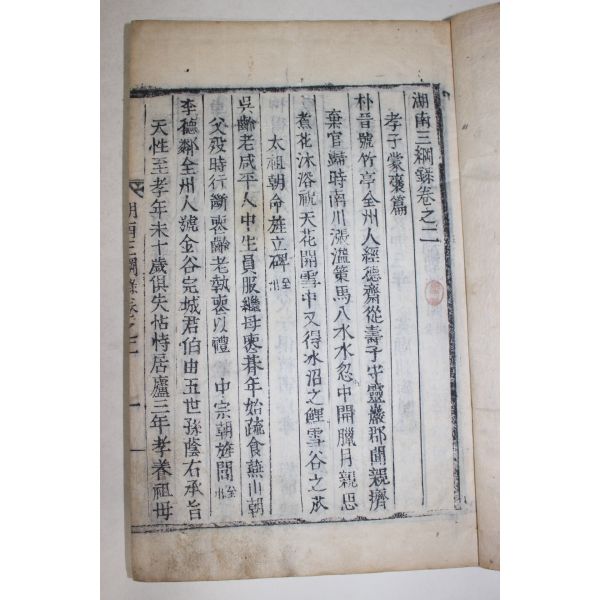 湖南三綱錄卷之二
孝子蒙褒篇
朴晉號竹亭全州人經德齋從壽子守靈巖郡聞親癠
棄官歸時南川漲溢策馬入水水忽中開臘月親思
煮花沐浴祝天花開雪中又得氷沼之鯉雪谷之
太祖朝命旌立碑
吳齡老咸平人中生員服繼母喪朞年始疏食燕山朝
父歿時行斷喪齡老執喪以禮 中宗朝旌閭
李德鄰全州人號金谷完城君伯由五世孫蔭右承旨
天性至孝年未十歲俱失怙恃居廬三年孝養祖母
三綱錄卷之二